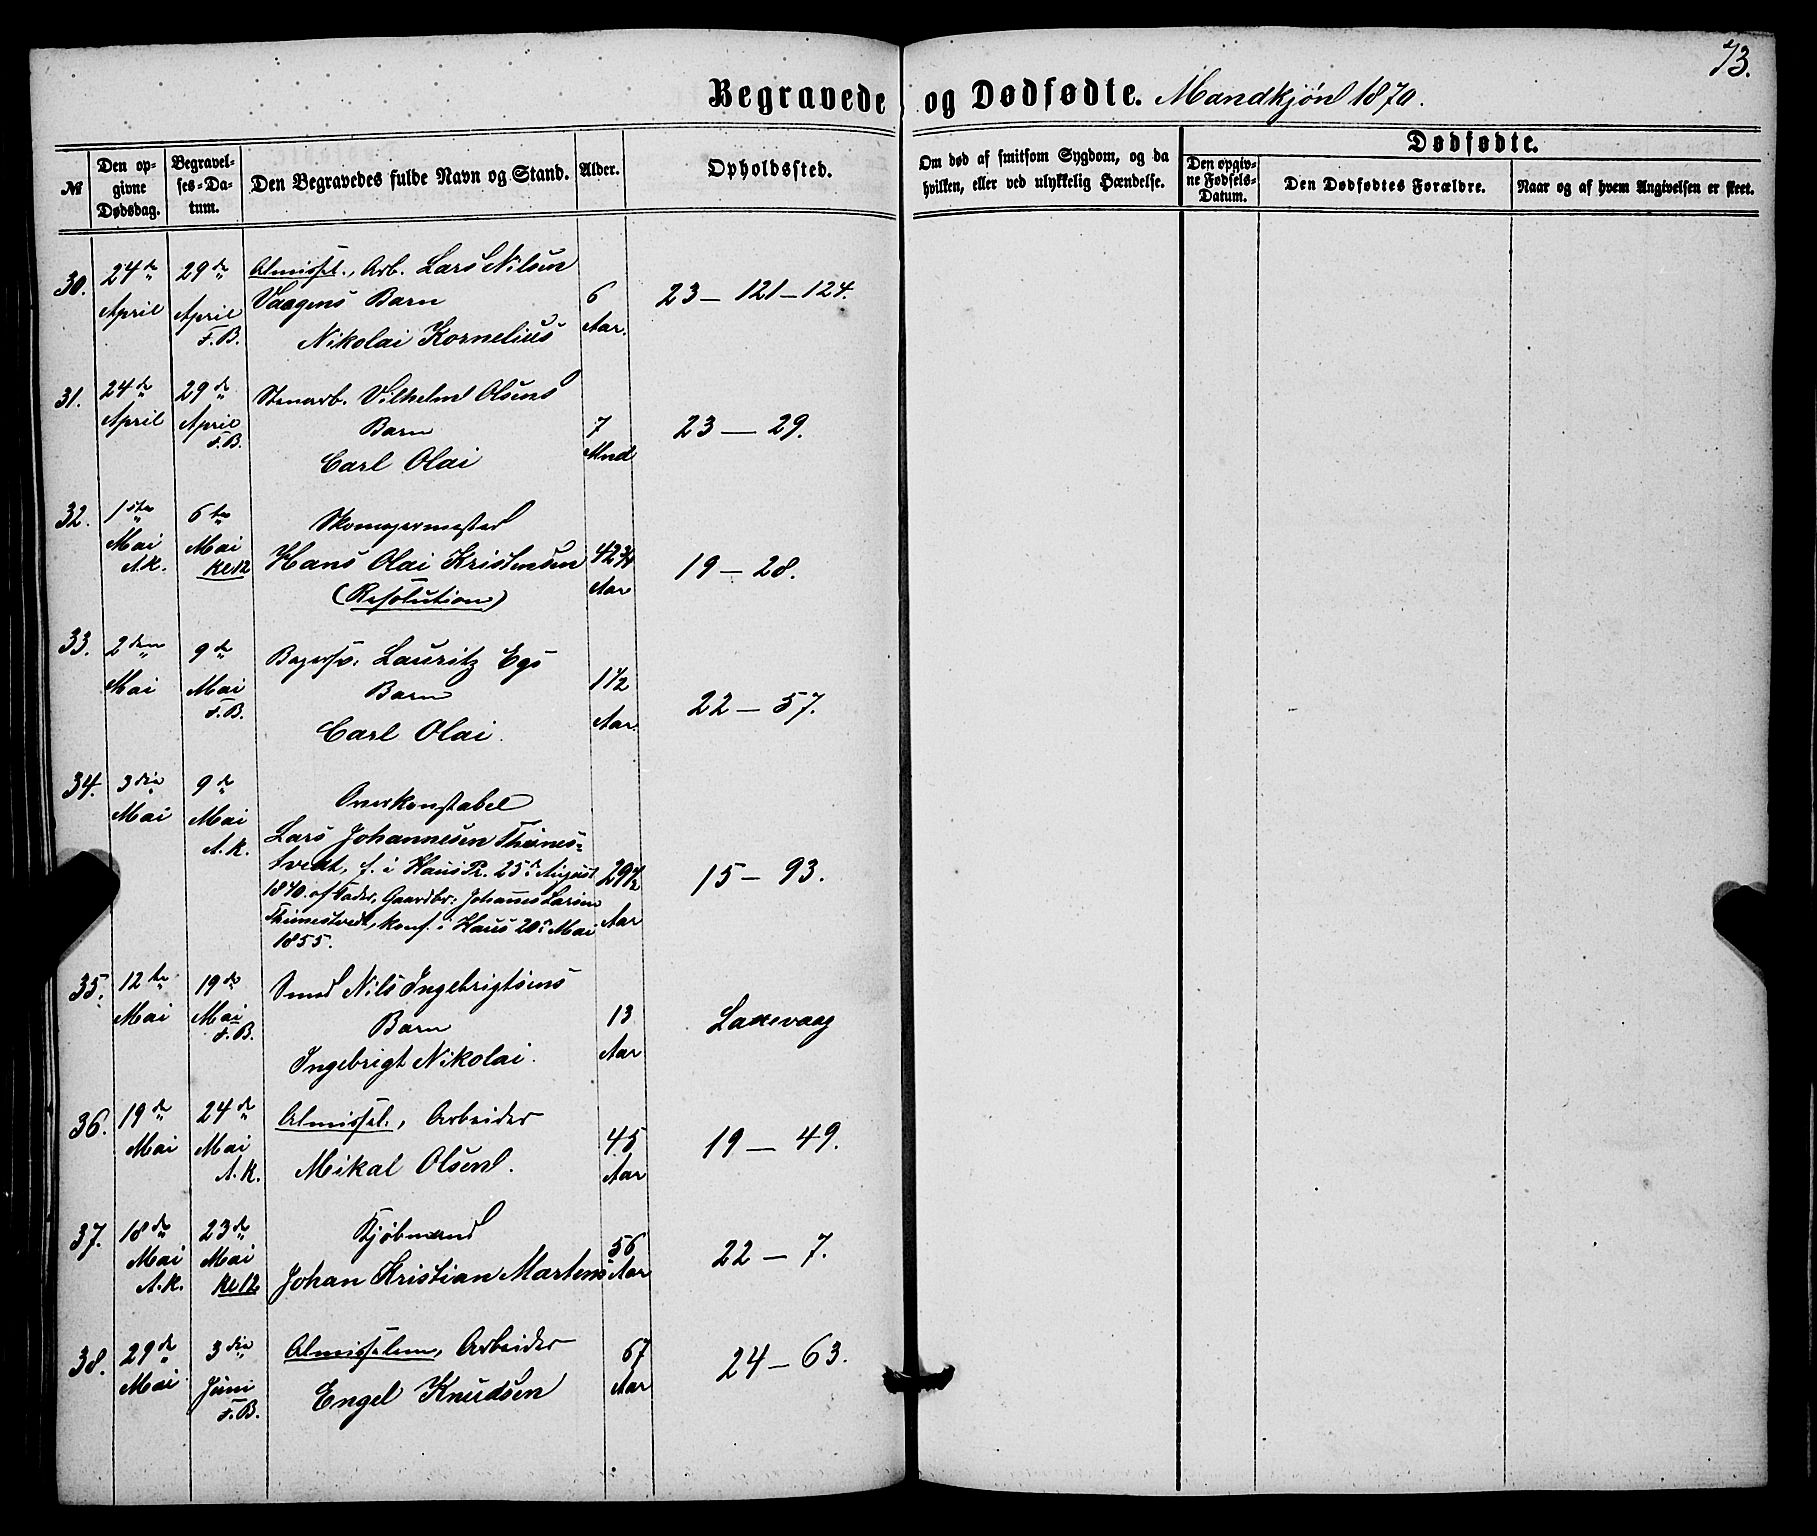 73.
Begravede og Dødfødte. Mandkjön 1870.
№
Den opgivne Dødsdag.
Begravelses-Datum.
Den Begravedes fulde Navn og Stand.
Alder.
Opholdssted.
Om død af smitsom Sygdom, og da hvilken, eller ved ulykkelig Hændelse.
Dødfødte.
Den opgivne Fødsels-Datum.
Den Dødfødtes Forældre.
Naar og af hvem Angivelsen er skeet.
30. 24de April 29de April F.B. Almissel., Arb. Lars Nilsen
Vaagens Barn 6 Aar. 23 – 121 – 124.
Nikolai Kornelius
31. 24de April 29de April F.B. Stenarb. Vilhelm Olsens
Barn 7 Mnd 23 – 29.
Carl Olai
32. 1ste Mai A.K. 6te Mai Kl 12 Skomagermester
Hans Olai Kristensen 42 3/4 Aar 19 – 28.
(Resolution)
33. 2den Mai 9de Mai F.B. Bagersv. Lauritz Egs
Barn 1 1/2 Aar. 22 – 57.
Carl Olai.
34. 3die Mai 9de Mai A.K. Overkonstabel
Lars Johannesen Thunes-
tvedt, f. i Haus Pr. 25de August 29 1/2 Aar 15 – 93.
1840. af Fader, Gaardbr: Johannes Larsen
Thunestvedt, konf. i Haus 20de Mai
1855.
35. 12te Mai 19de Mai F.B. Smed Nils Ingebrigtsens
Barn 13 Aar Laxevaag
Ingebrigt Nikolai.
36. 19de Mai 24de Mai A.K. Almissel., Arbeider
Mikal Olsen. 45 Aar 19 – 49.
37. 18de Mai A.K. 23de Mai Kl 12 Kjöbmand
Johan Kristian Martens 56 Aar 22 – 7.
38. 29de Mai 3die Juni F.B. Almisselem, Arbeider
Engel Knudsen 67 Aar 24 – 63.